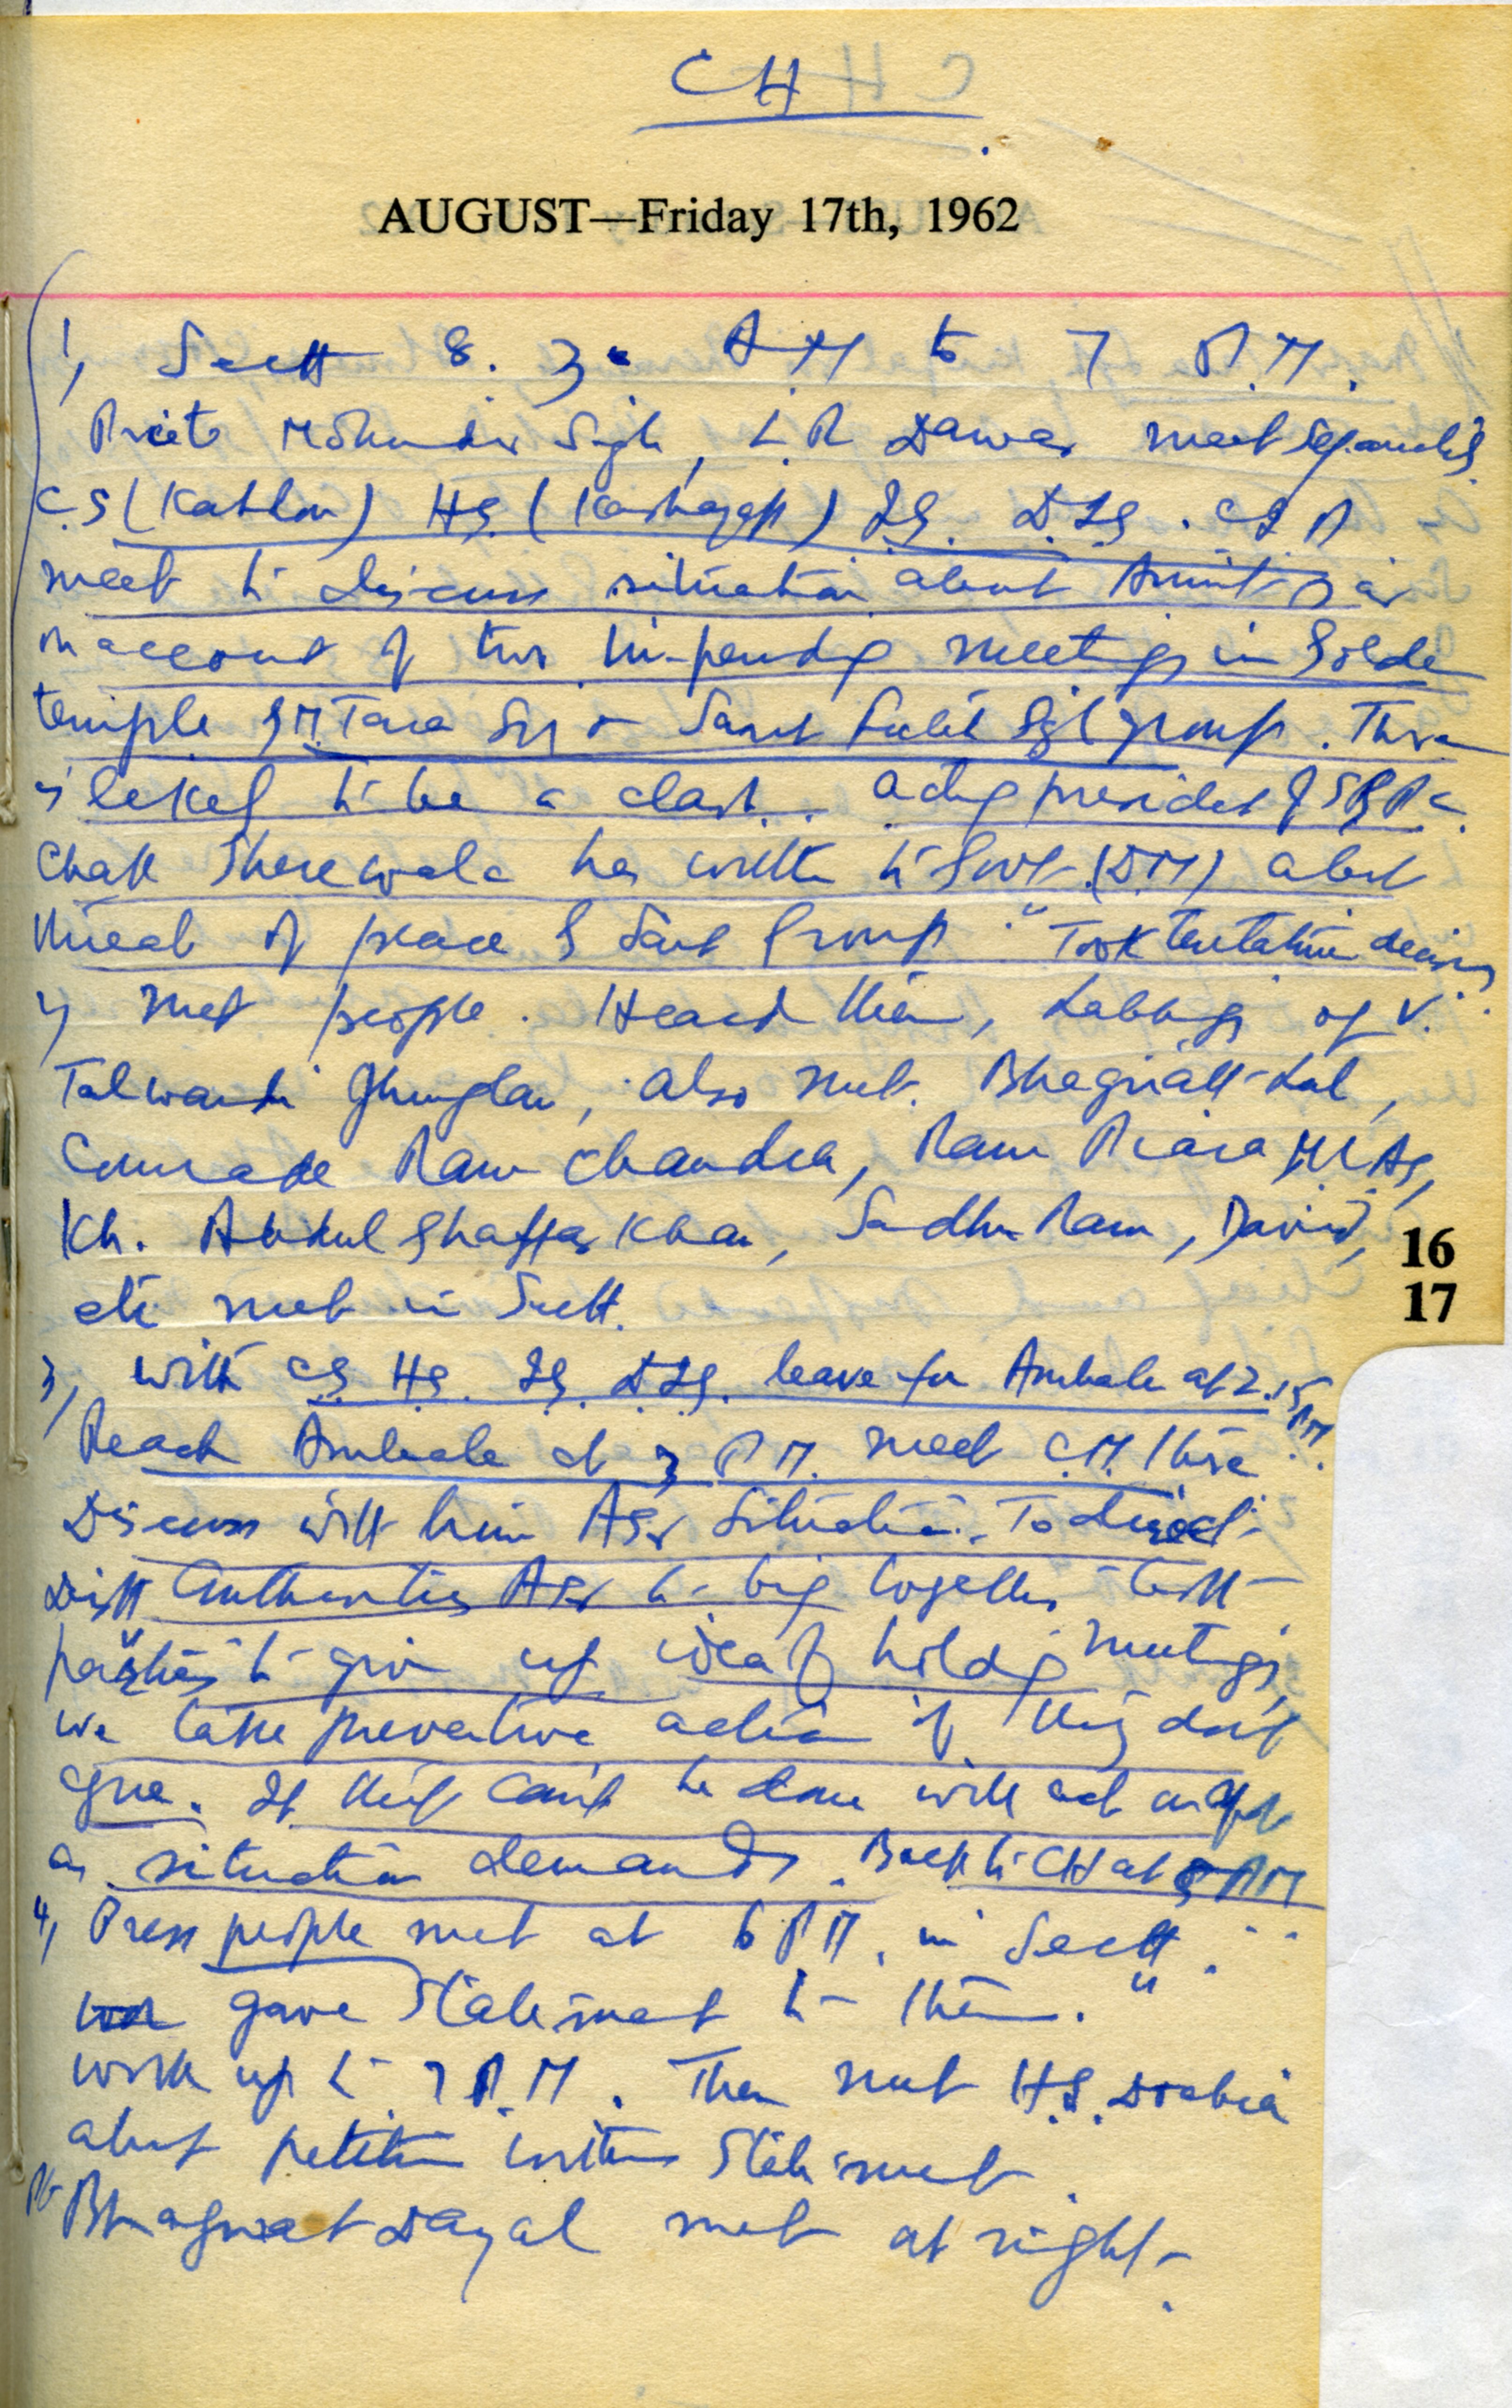 CH
AUGUST—Friday 17th, 1962
1, Sectt 8.30 A.M to 7 P.M.
Mohinder Singh, L.R Dawar meet separately
C.S (Kahlon) HS. (Kashayap) IG. DIG. CID
meet to discuss situation about Amritsar
on account of two impending meetings in Golden
temple of M. Tara Singh & Sant Fateh Singh group. There
is likely to be a clash. Acting president of SGPC
Chak Sherewala has written to Govt. (D.M) about
threat of peace of Sant Group. Took tentative decisions
2, Met people. Heard them, of V.
Talwandi Ghunglan, also met. Lal,
Comrade Ram Chandra, Ram Piara MLAs,
Kh. Abdul Ghaffar Khan, Sadhu Ram, David,
etc met in Sectt.
3, With CS. HS. IG. DIG. leave for Ambala at 2.15 PM
Reach Ambala at 3 P.M. meet C.M. there
Discuss with him ASR situation. To direct
Distt authorities ASR to bring together both
parties to give up idea of holding meetings,
we take preventive action if they don't
agree. If this can't be done will act
as situation demands. Back to CH at 5 PM
4, Press people met at 6 PM. in Sectt.
gave statement to them.
work up to 7 P.M. Then met H.S. Doabia
about petition written statement.
Bhagwat Dayal met at night.
16
17